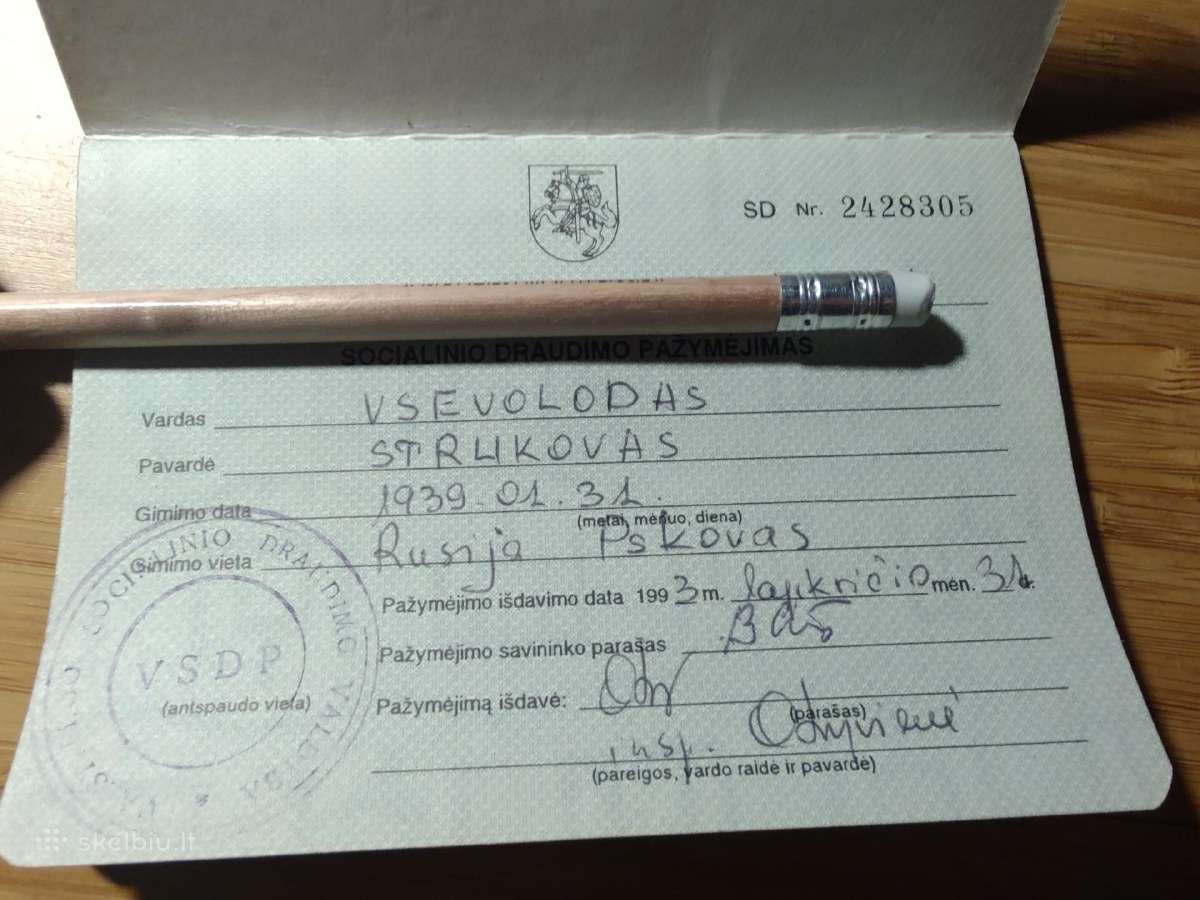 SD Nr. 2428305
SOCIALINIO DRAUDIMO PAŽYMĖJIMAS
Vardas VSEVOLODAS
Pavardė STRUKOVAS
Gimimo data 1939.01.31.
(metai, mėnuo, diena)
Gimimo vieta Rusija Pskovas
Pažymėjimo išdavimo data 1993 m. lapkričio mėn. 31 d.
Pažymėjimo savininko parašas
VSDP
(antspaudo vieta)
Pažymėjimą išdavė:
(parašas)
insp.
(pareigos, vardo raidė ir pavardė)
SOCIALINIO DRAUDIMO
skelbiu.lt